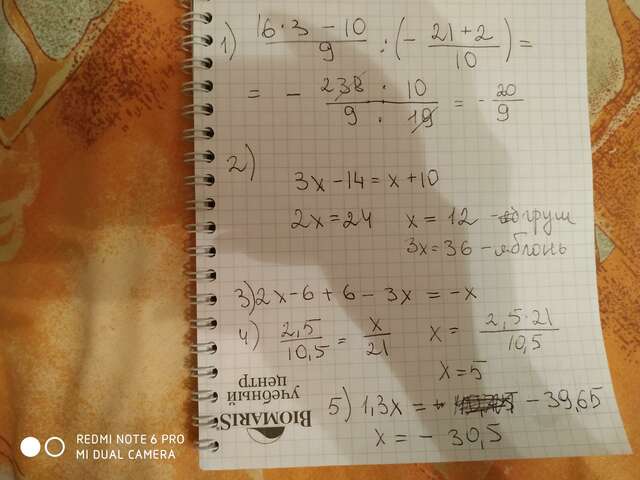 1) (16·3 - 10)/9 : (- (21+2)/10) =
= - (238 · 10)/(9 · 19) = - 20/9
2)
3x - 14 = x + 10
2x = 24 x = 12 - груш
3x = 36 - яблонь
3) 2x - 6 + 6 - 3x = -x
4) 2,5/10,5 = x/21 x = 2,5·21/10,5
x = 5
5) 1,3x = - 39,65
x = - 30,5
BIOMARIS
учебный
центр
REDMI NOTE 6 PRO
MI DUAL CAMERA